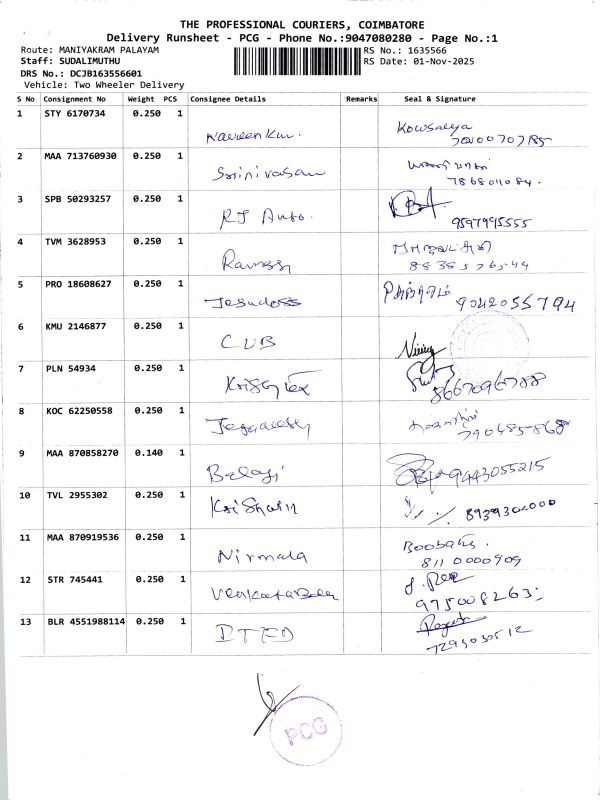 THE PROFESSIONAL COURIERS, COIMBATORE
Delivery Runsheet - PCG - Phone No.:9047080280 - Page No.:1
Route: MANIYAKRAM PALAYAM
RS No.: 1635566
Staff: SUDALIMUTHU
RS Date: 01-Nov-2025
DRS No.: DCJB163556601
Vehicle: Two Wheeler Delivery
S No Consignment No Weight PCS Consignee Details Remarks Seal & Signature
1 STY 6170734 0.250 1 Naveen Kur. Kowsalya
2 MAA 713760930 0.250 1 Srinivasan
3 SPB 50293257 0.250 1 RJ Auto. 9597995555
4 TVM 3628953 0.250 1 Ramesh
5 PRO 18608627 0.250 1 Jesudoss 9042055794
6 KMU 2146877 0.250 1 CUB
7 PLN 54934 0.250 1 8667096788
8 KOC 62250558 0.250 1 Jegadeesh
9 MAA 870858270 0.140 1 Balaji 9443055215
10 TVL 2955302 0.250 1 8939302000
11 MAA 870919536 0.250 1 Nirmala
8110000909
12 STR 745441 0.250 1
13 BLR 4551988114 0.250 1 DTED
PCG